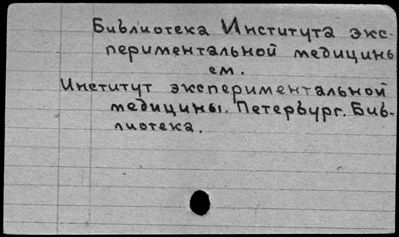 Библиотека Института экс-
периментальной медицины
см.
Институт экспериментальной
медицины. Петербург. Биб-
лиотека.